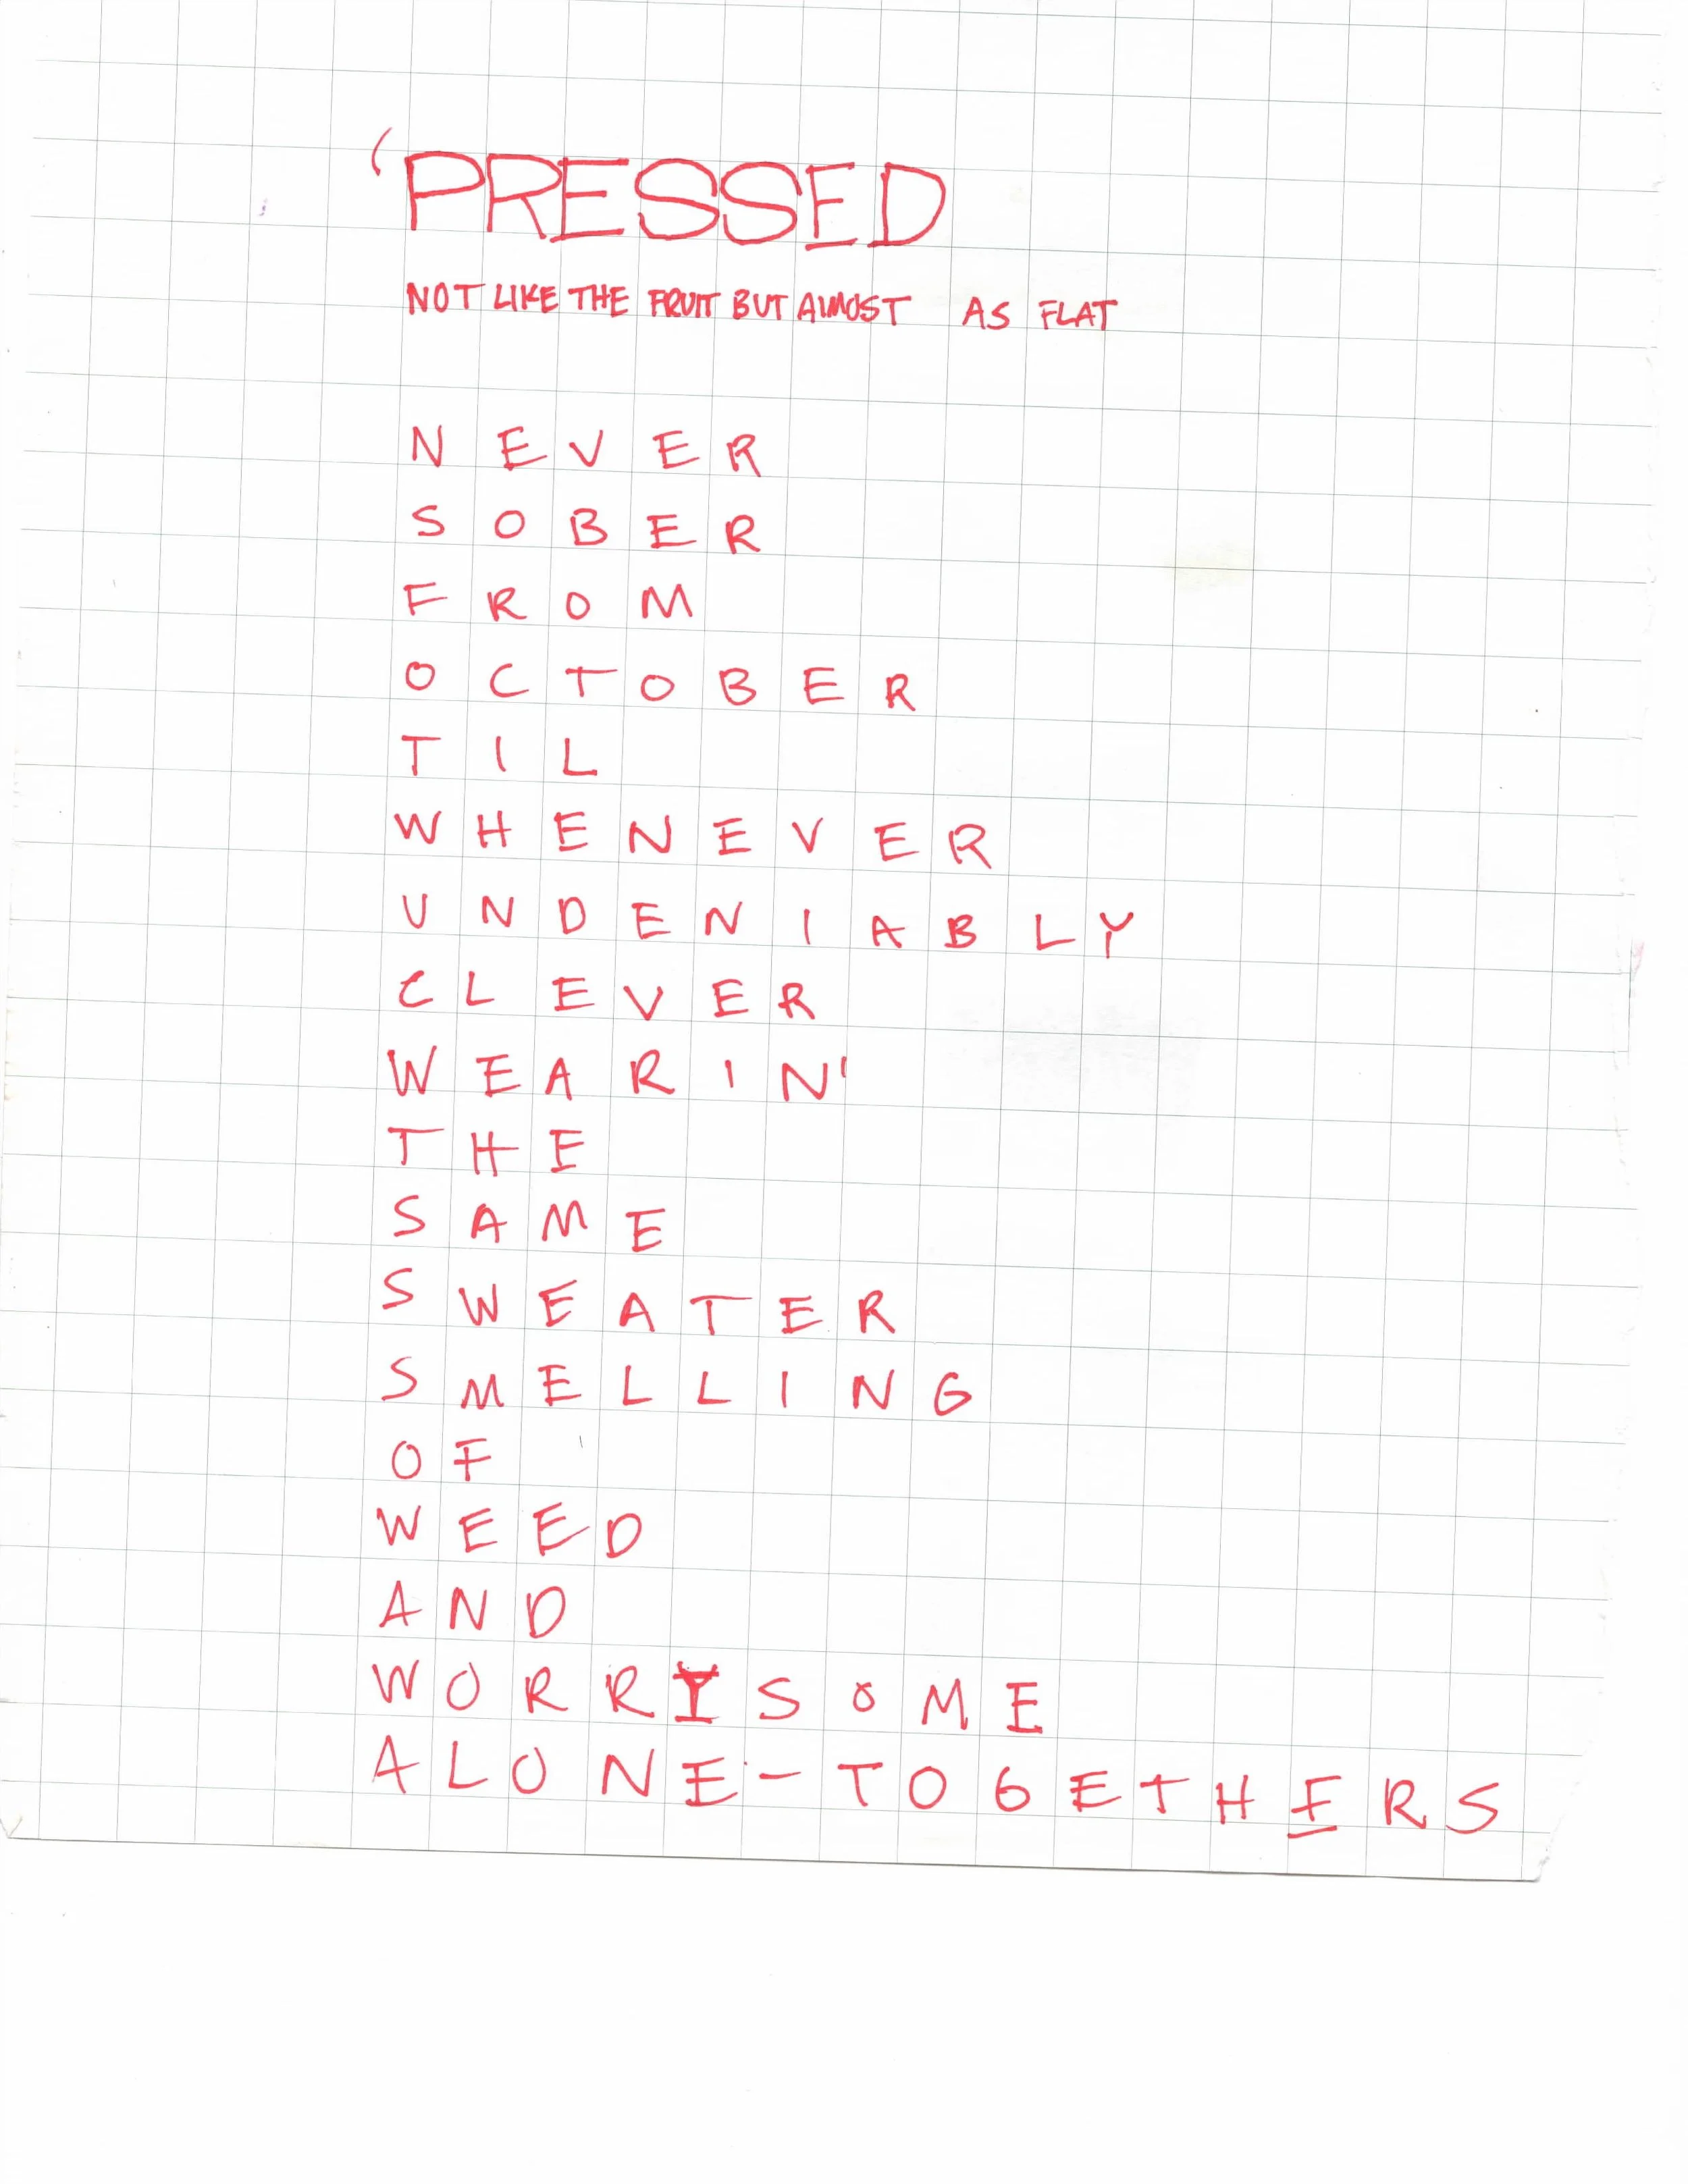 'PRESSED
NOT LIKE THE FRUIT BUT ALMOST AS FLAT
NEVER
SOBER
FROM
OCTOBER
TIL
WHENEVER
UNDENIABLY
CLEVER
WEARIN'
THE
SAME
SWEATER
SMELLING
OF
WEED
AND
WORRYSOME
ALONE-TOGETHERS